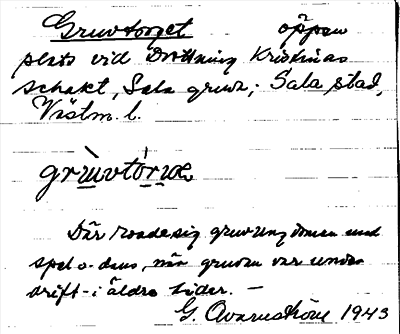 Gruvtorget öppen
plats vid Drottning Kristinas
schakt, Sala gruva; Sala stad,
Västm. l.
Där roade sig gruvungdomen med
spel o. dans, när gruvan var under
drift - i äldre tider. —
G. Avarnström 1943